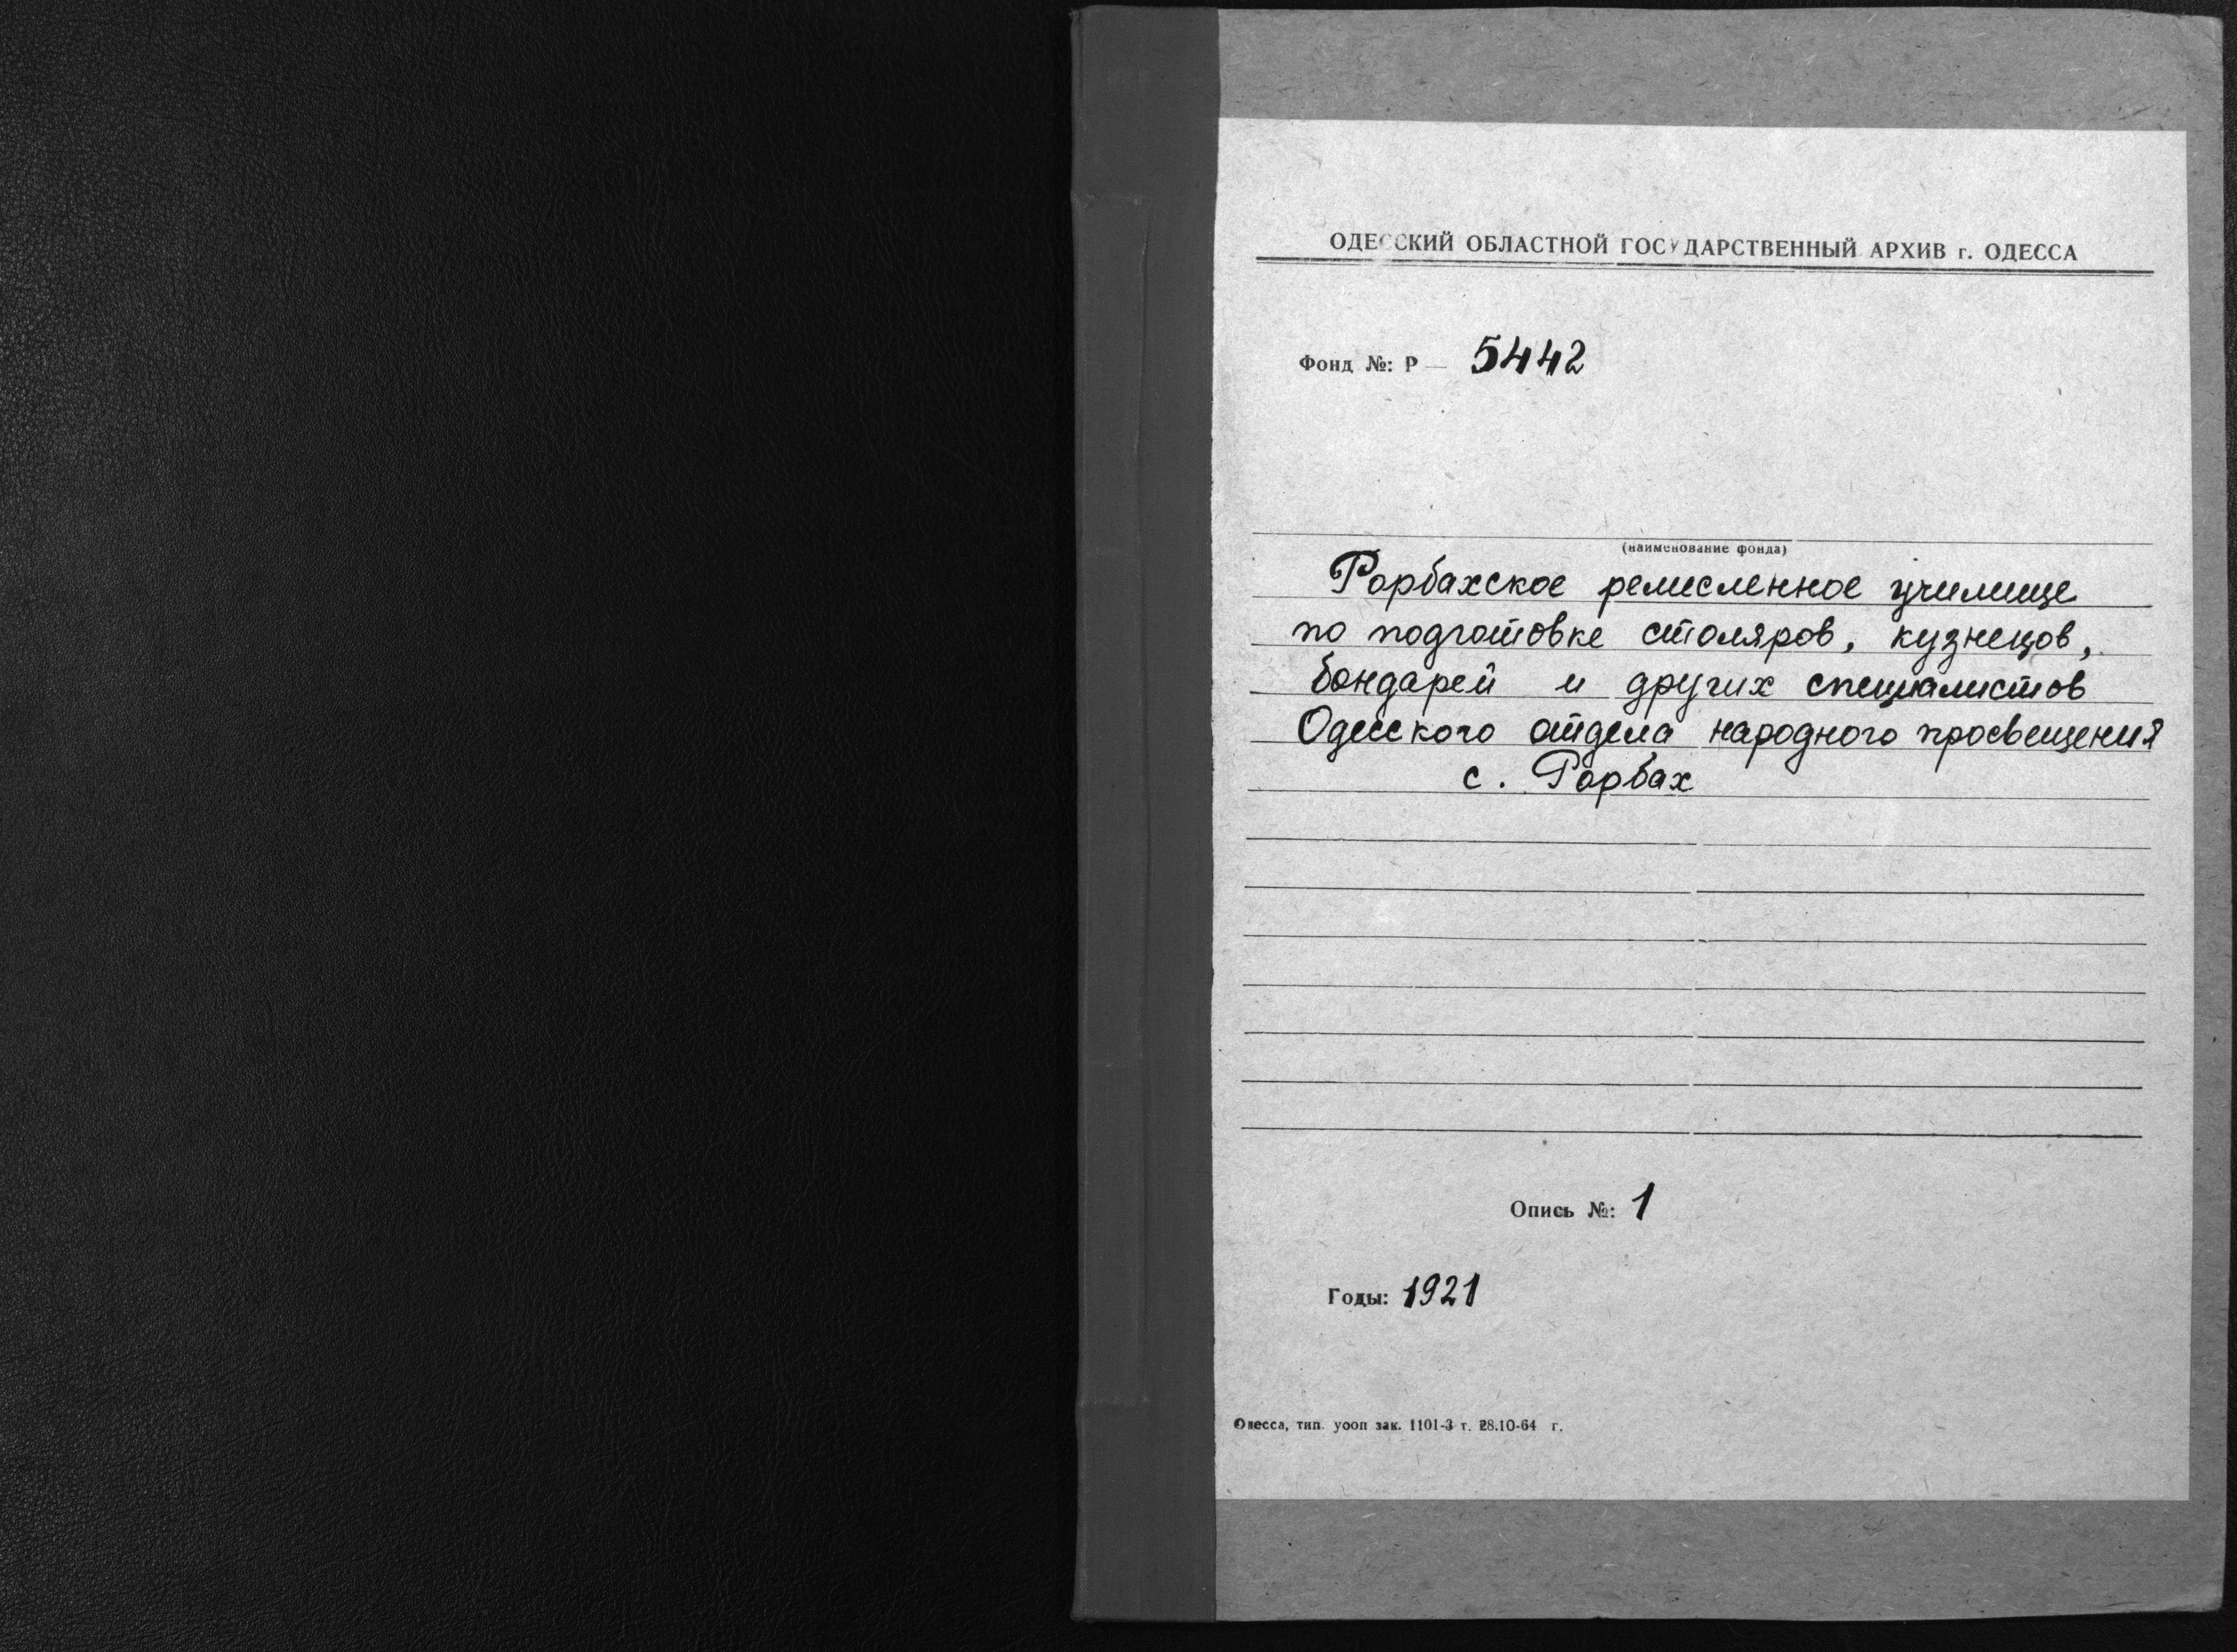 ОДЕССКИЙ ОБЛАСТНОЙ ГОСУДАРСТВЕННЫЙ АРХИВ г. ОДЕССА
Фонд №: Р — 5442
(наименование фонда)
Рорбахское ремесленное училище
по подготовке столяров, кузнецов,
бондарей и других специалистов
Одесского отдела народного просвещения
с. Рорбах
Опись №: 1
Годы: 1921
Одесса, тип. уооп зак. 1101-3 т. 28.10-64 г.